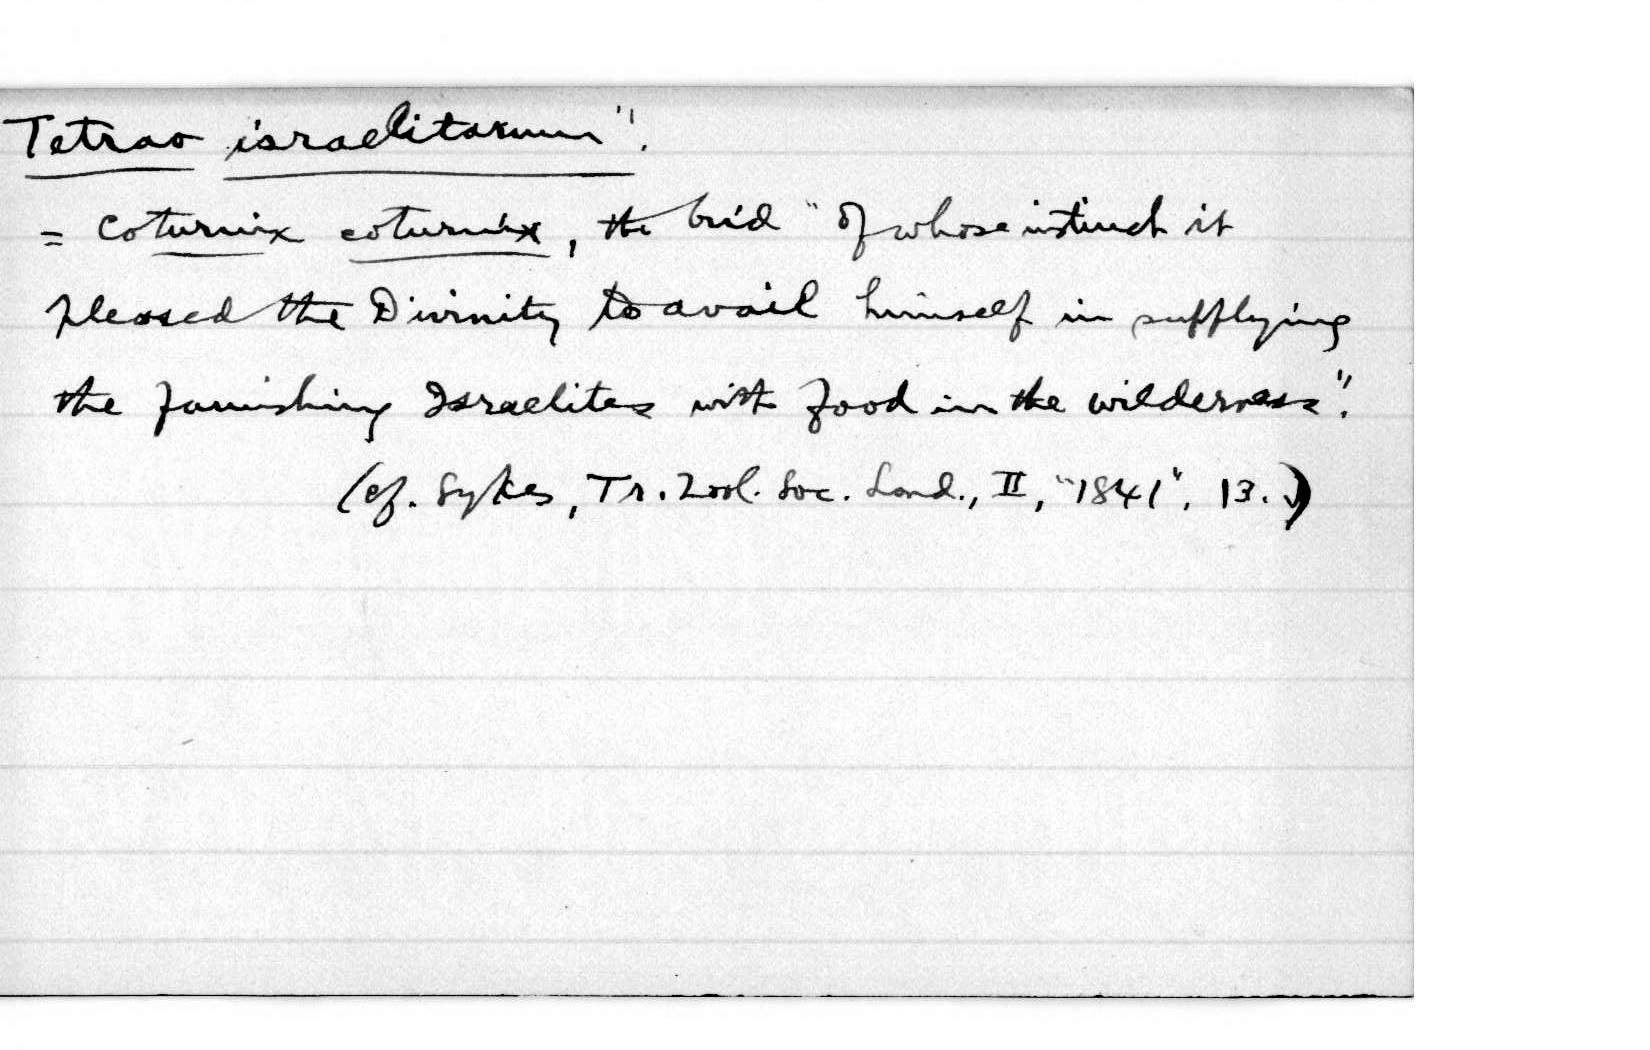 Tetrao israelitarum".
= Coturnix coturnix, the bird "of whose instinct it
pleased the Divinity to avail himself in supplying
the famishing Israelites with food in the wilderness".
(cf. Sykes, Tr. Zool. Soc. Lond., II, "1841", 13.)